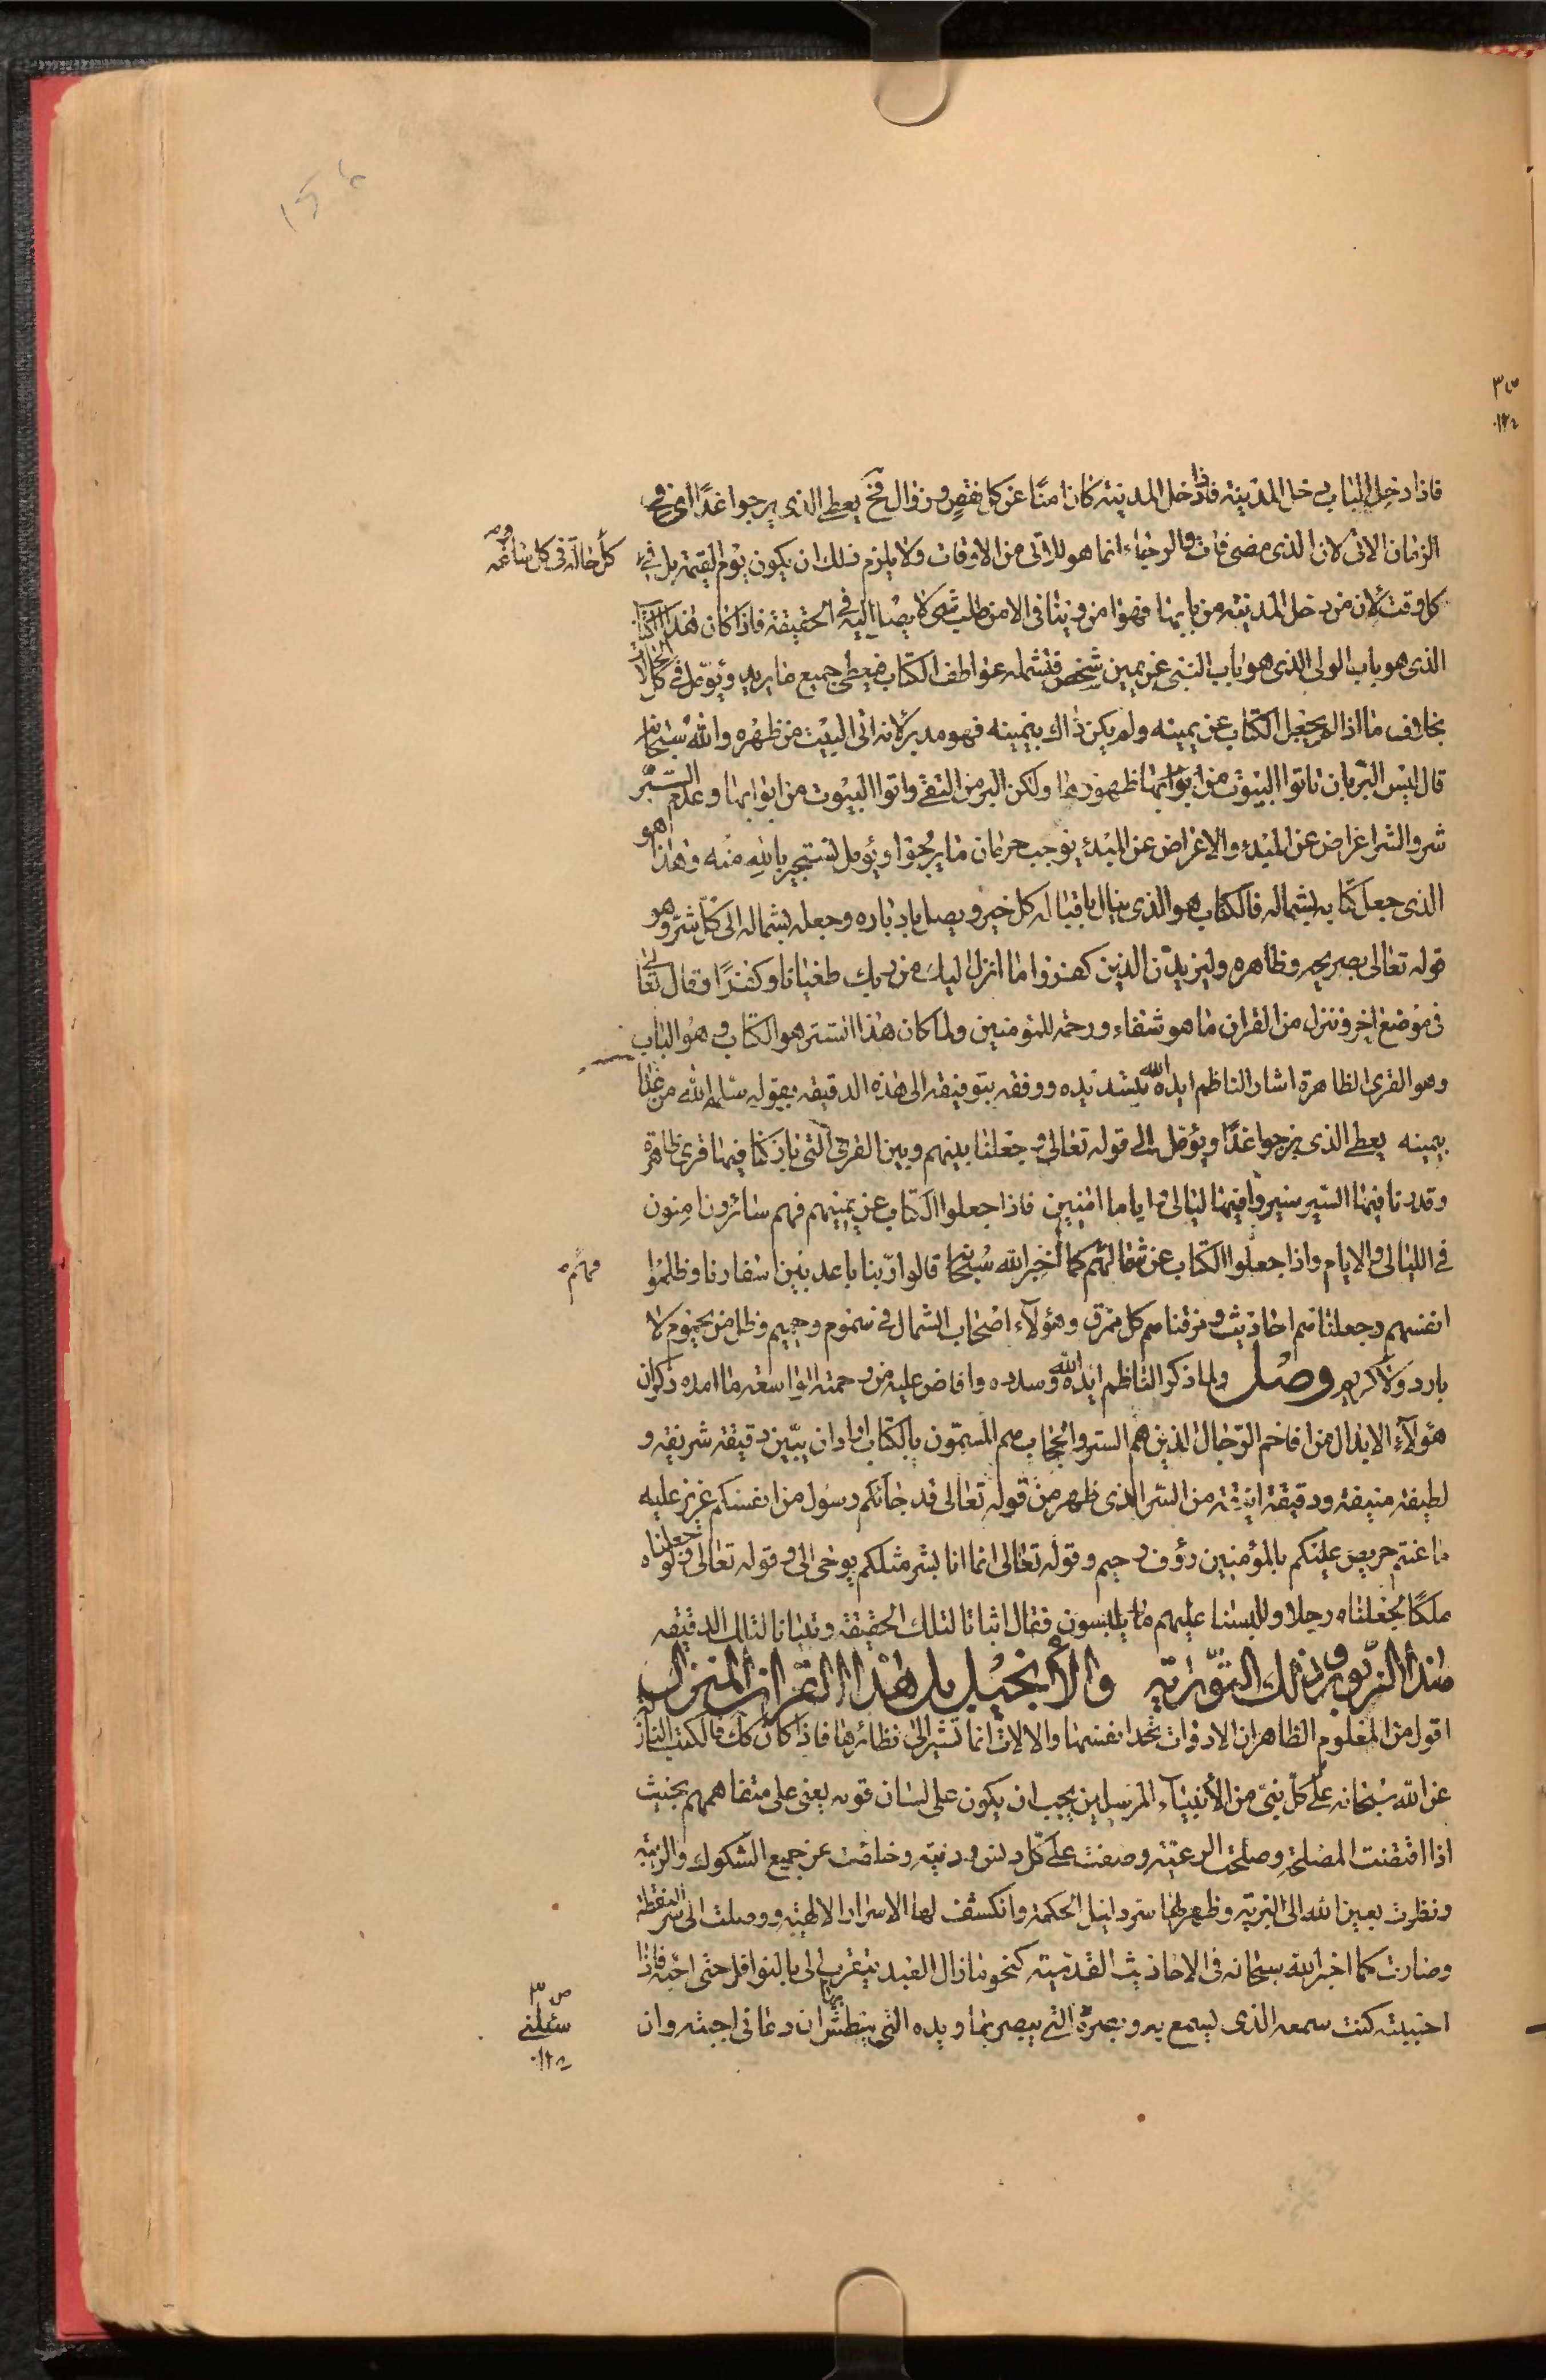 فاذا دخل الباب دخل المدينة فاذا دخل المدينة كان امنا عن كل نقص وزوال فح يعطى الذى يرجوا غدا اى فى
الزمان الاتى لان الذى مضى فات والرجاء انما هو للاتى من الاوقات ولا يلزم ذلك ان يكون يوم القيمة بل فى
كل وقت لان من دخل المدينة من بابها فهو امن ويتنافى الامن طلب شى لا يصل اليه فى الحقيقة فاذا كان هذا الكتاب
كل حالة فى كل ساعة و
الذى هو باب الولى الذى هو باب النبى عن يمين شخص فتشمله عواطف الكتاب فيعطى جميع ما يريد ويؤمل فى كل الحالات
بخلاف ما اذا لم يجعل الكتاب عن يمينه ولم يكن ذاك بيمينه فهو مدبر لانه اتى البيت من ظهره والله سبحانه
قال ليس البر بان تاتوا البيوت من ظهورها ولكن البر من اتقى واتوا البيوت من ابوابها وعدم البر
شر والشر اعراض عن المبدء والاعراض عن المبدء يوجب حرمان ما يرجوا ويؤمل نستجير بالله منه وهذا هو
الذى جعل كتابه بشماله فالكتاب هو الذى ينال باقباله كل خير ويصل بادباره وجعله بشماله الى كل شر وهو
قوله تعالى بصريحه وظاهره وليزيدن الذين كفروا ما انزل اليك من ربك طغيانا وكفرا وقال تعالى
فى موضع اخر وننزل من القران ما هو شفاء ورحمة للمؤمنين ولما كان هذا الستر هو الكتاب وهو الباب
وهو القرى الظاهرة اشار الناظم ايده الله بتسديده ووفقه بتوفيقه الى هذه الدقيقة بقوله سلمه الله من
بيمينه يعطى الذى يرجوا غدا ويؤمل الى قوله تعالى وجعلنا بينهم وبين القرى التى باركنا فيها قرى ظاهرة
وقدرنا فيها السير سيروا فيها ليالى واياما امنين فاذا جعلوا الكتاب عن يمينهم فهم سائرون امنون
فى الليالى والايام واذا جعلوا الكتاب عن شمالهم كما اخبر الله سبحانه قالوا ربنا باعد بين اسفارنا وظلموا
انفسهم وجعلناهم احاديث ومزقناهم كل ممزق وهؤلاء اصحاب الشمال فى سموم وحميم وظل من يحموم لا
بارد ولا كريم وصل ولما ذكر الناظم ايده الله وسدده وافاض عليه من رحمته الواسعة ما امده ذكر ان
هؤلاء الابدال من افاخم الرجال الذين هم الستر والحجاب هم المسمون بالكتاب اراد ان يبين دقيقة شريفة و
لطيفة منيفة ودقيقة انيقة من السر الذى ظهر من قوله تعالى قد جائكم رسول من انفسكم عزيز عليه
ما عنتم حريص عليكم بالمؤمنين رؤف رحيم وقوله تعالى انما انا بشر مثلكم يوحى الى وقوله تعالى ولو جعلناه
ملكا لجعلناه رجلا وللبسنا عليهم ما يلبسون فقال اثباتا لتلك الحقيقة وتبيانا لتلك الدقيقة
هذا الزبور وذلك التوراية والانجيل بل هذا القران المنزل
اقول من المعلوم الظاهر ان الادوات تحد انفسها والالات انما تشير الى نظائرها فاذا كان كك فالكتب النازلة
عن الله سبحانه على كل نبى من الانبياء المرسلين يجب ان يكون على لسان قومه يعنى على متفاهمهم بحيث
اذا اقتضت المصلحة وصلحت الرعية وصفت على كل دنس ودنية وخلصت عن جميع الشكوك والريبة
ونظرت بعين الله الى البرية وظهر لها سر دليل الحكمة وانكشف لها الاسرار الالهية ووصلت الى سر النقطة
وصارت كما اخبر الله سبحانه فى الاحاديث القدسية كنحو ما زال العبد يتقرب الى بالنوافل حتى احبه فاذا
احببته كنت سمعه الذى يسمع به وبصره الذى يبصر بها ويده التى يبطش بها ان دعانى اجبته وان
سئلنى